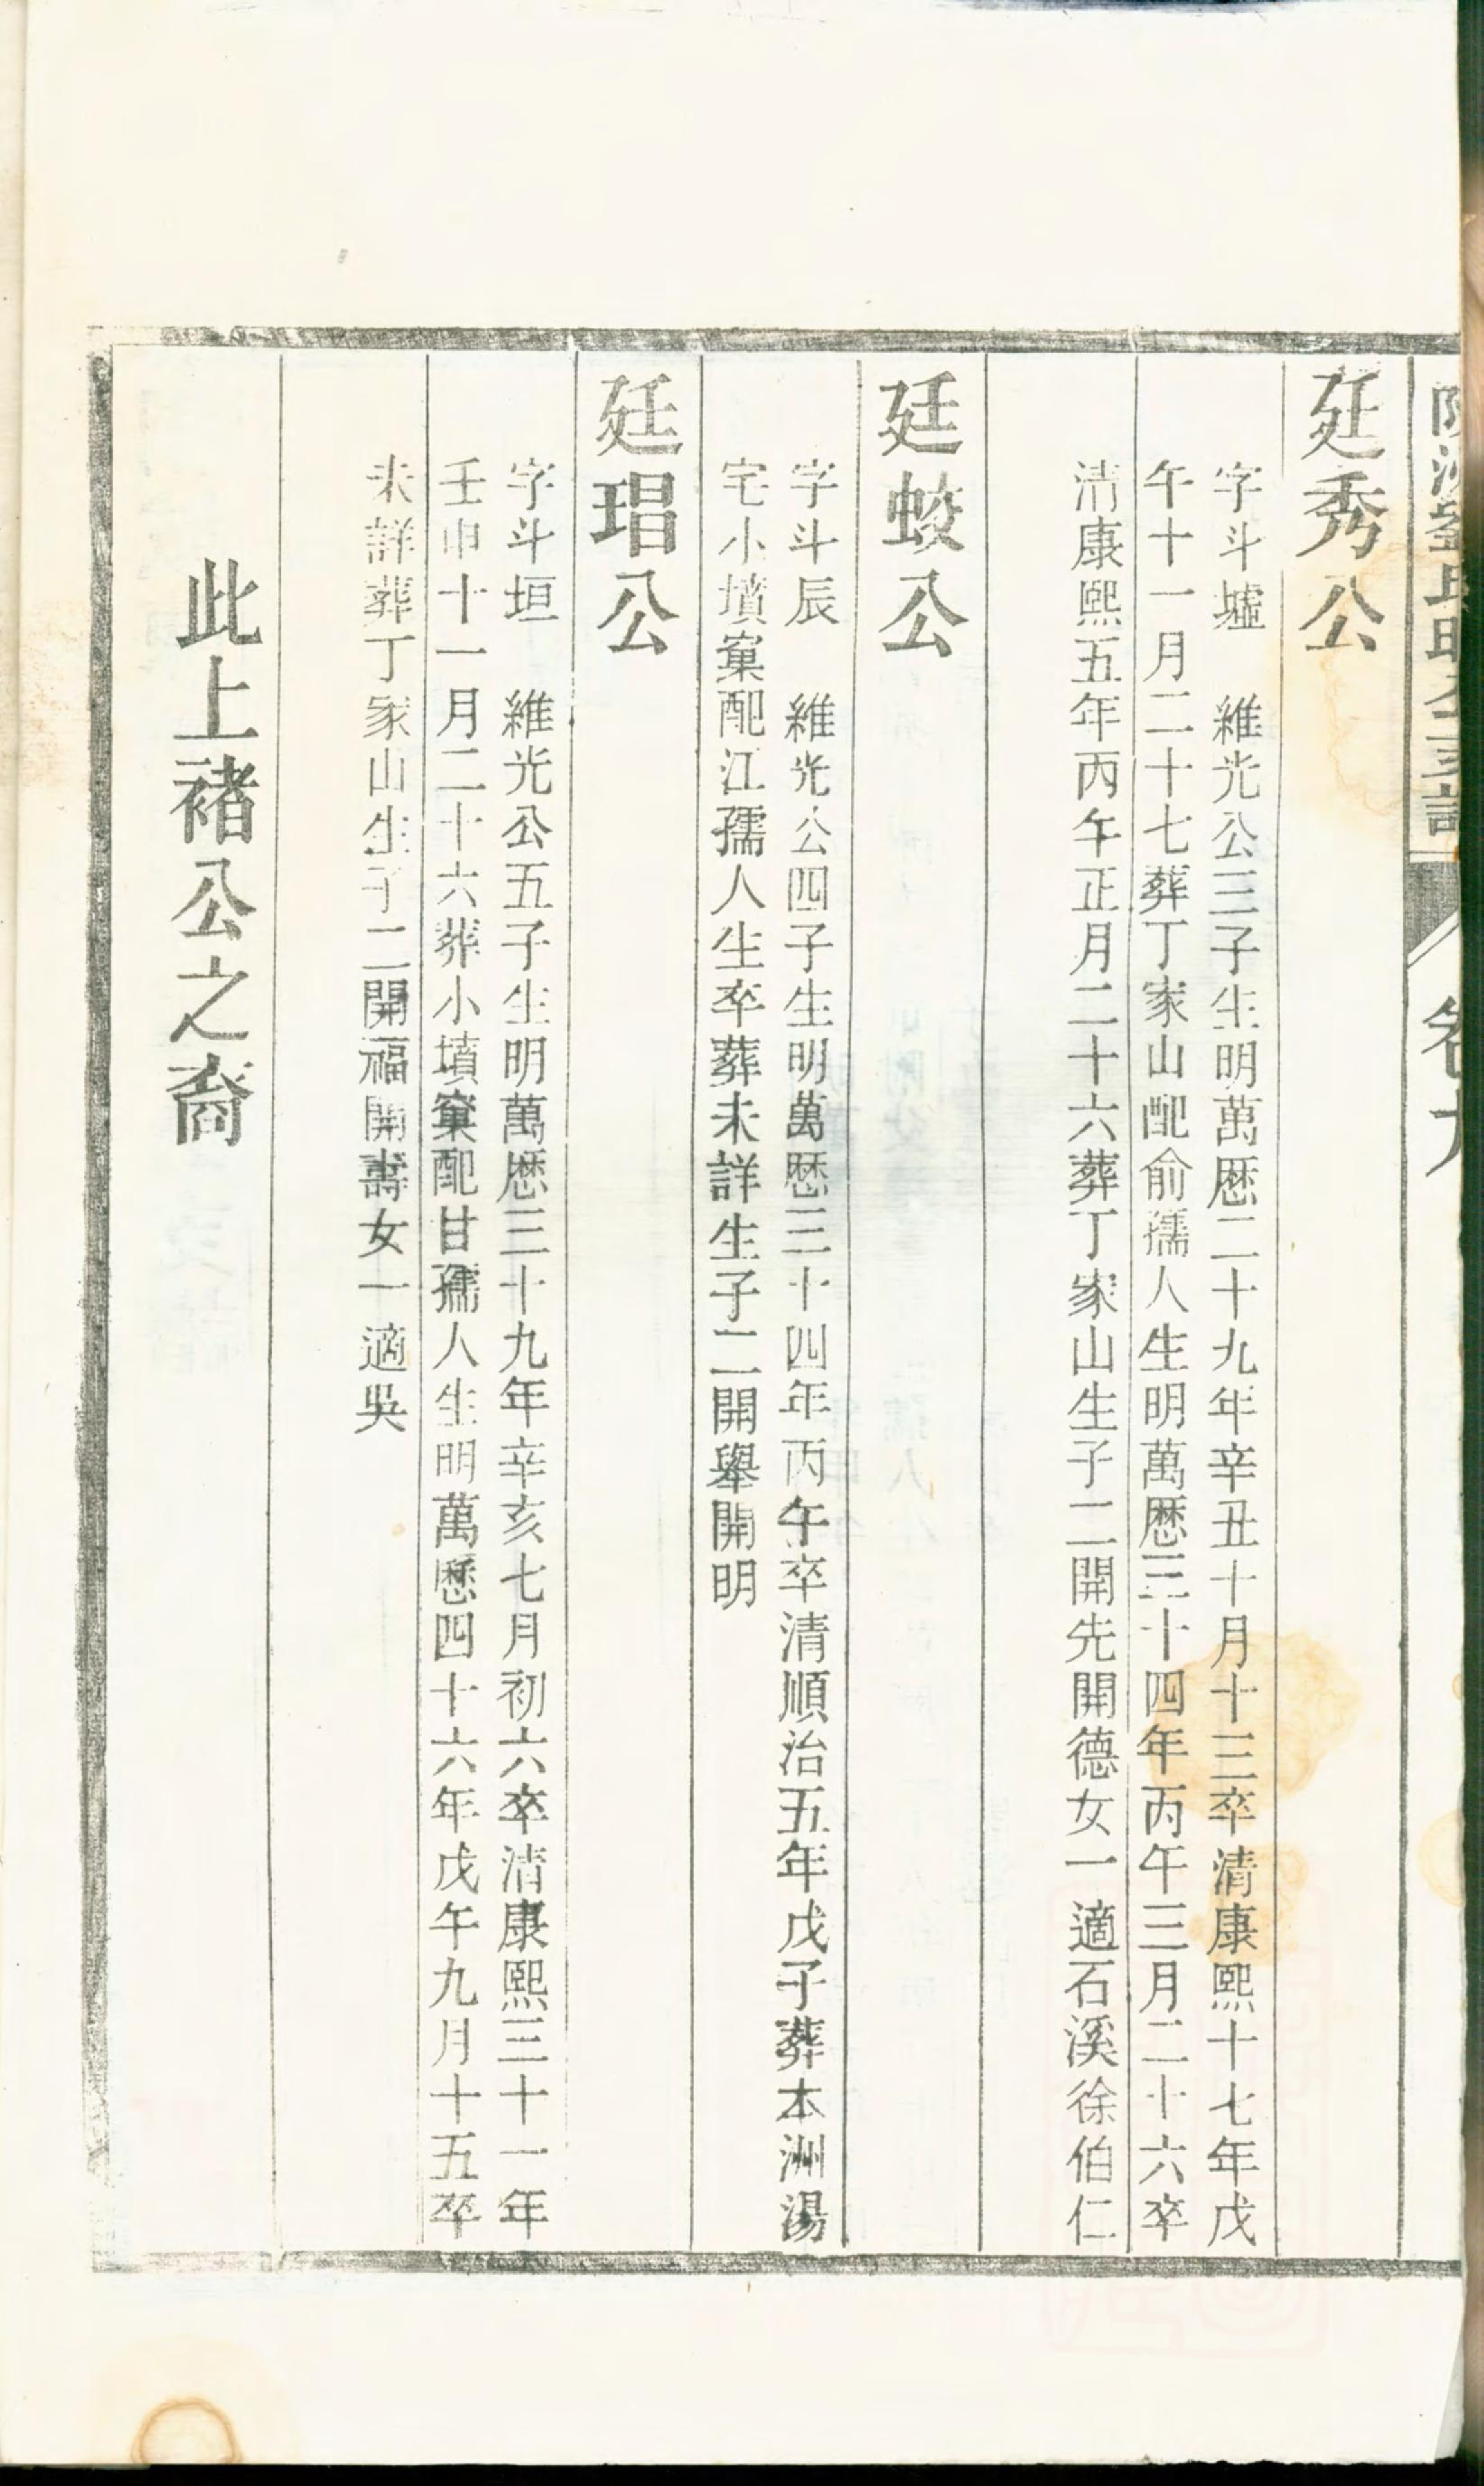 劉氏
卷九
廷秀公
字斗墟　維光公三子生明萬厯二十九年辛丑十月十三卒清康熙十七年戊
午十一月二十七葬丁家山配俞孺人生明萬厯三十四年丙午三月二十六卒
清康熙五年丙午正月二十六葬丁家山生子二開先開德女一適石溪徐伯仁
廷蛟公
字斗辰　維光公四子生明萬厯三十四年丙午卒清順治五年戊子葬本洲湯
宅小墳窠配江孺人生卒葬未詳生子二開舉開明
廷琩公
字斗垣　維光公五子生明萬厯三十九年辛亥七月初六卒清康熙三十一年
壬申十一月二十六葬小墳窠配甘孺人生明萬厯四十六年戊午九月十五卒
未詳葬丁家山生子二開福開壽女一適吳
此上褚公之裔